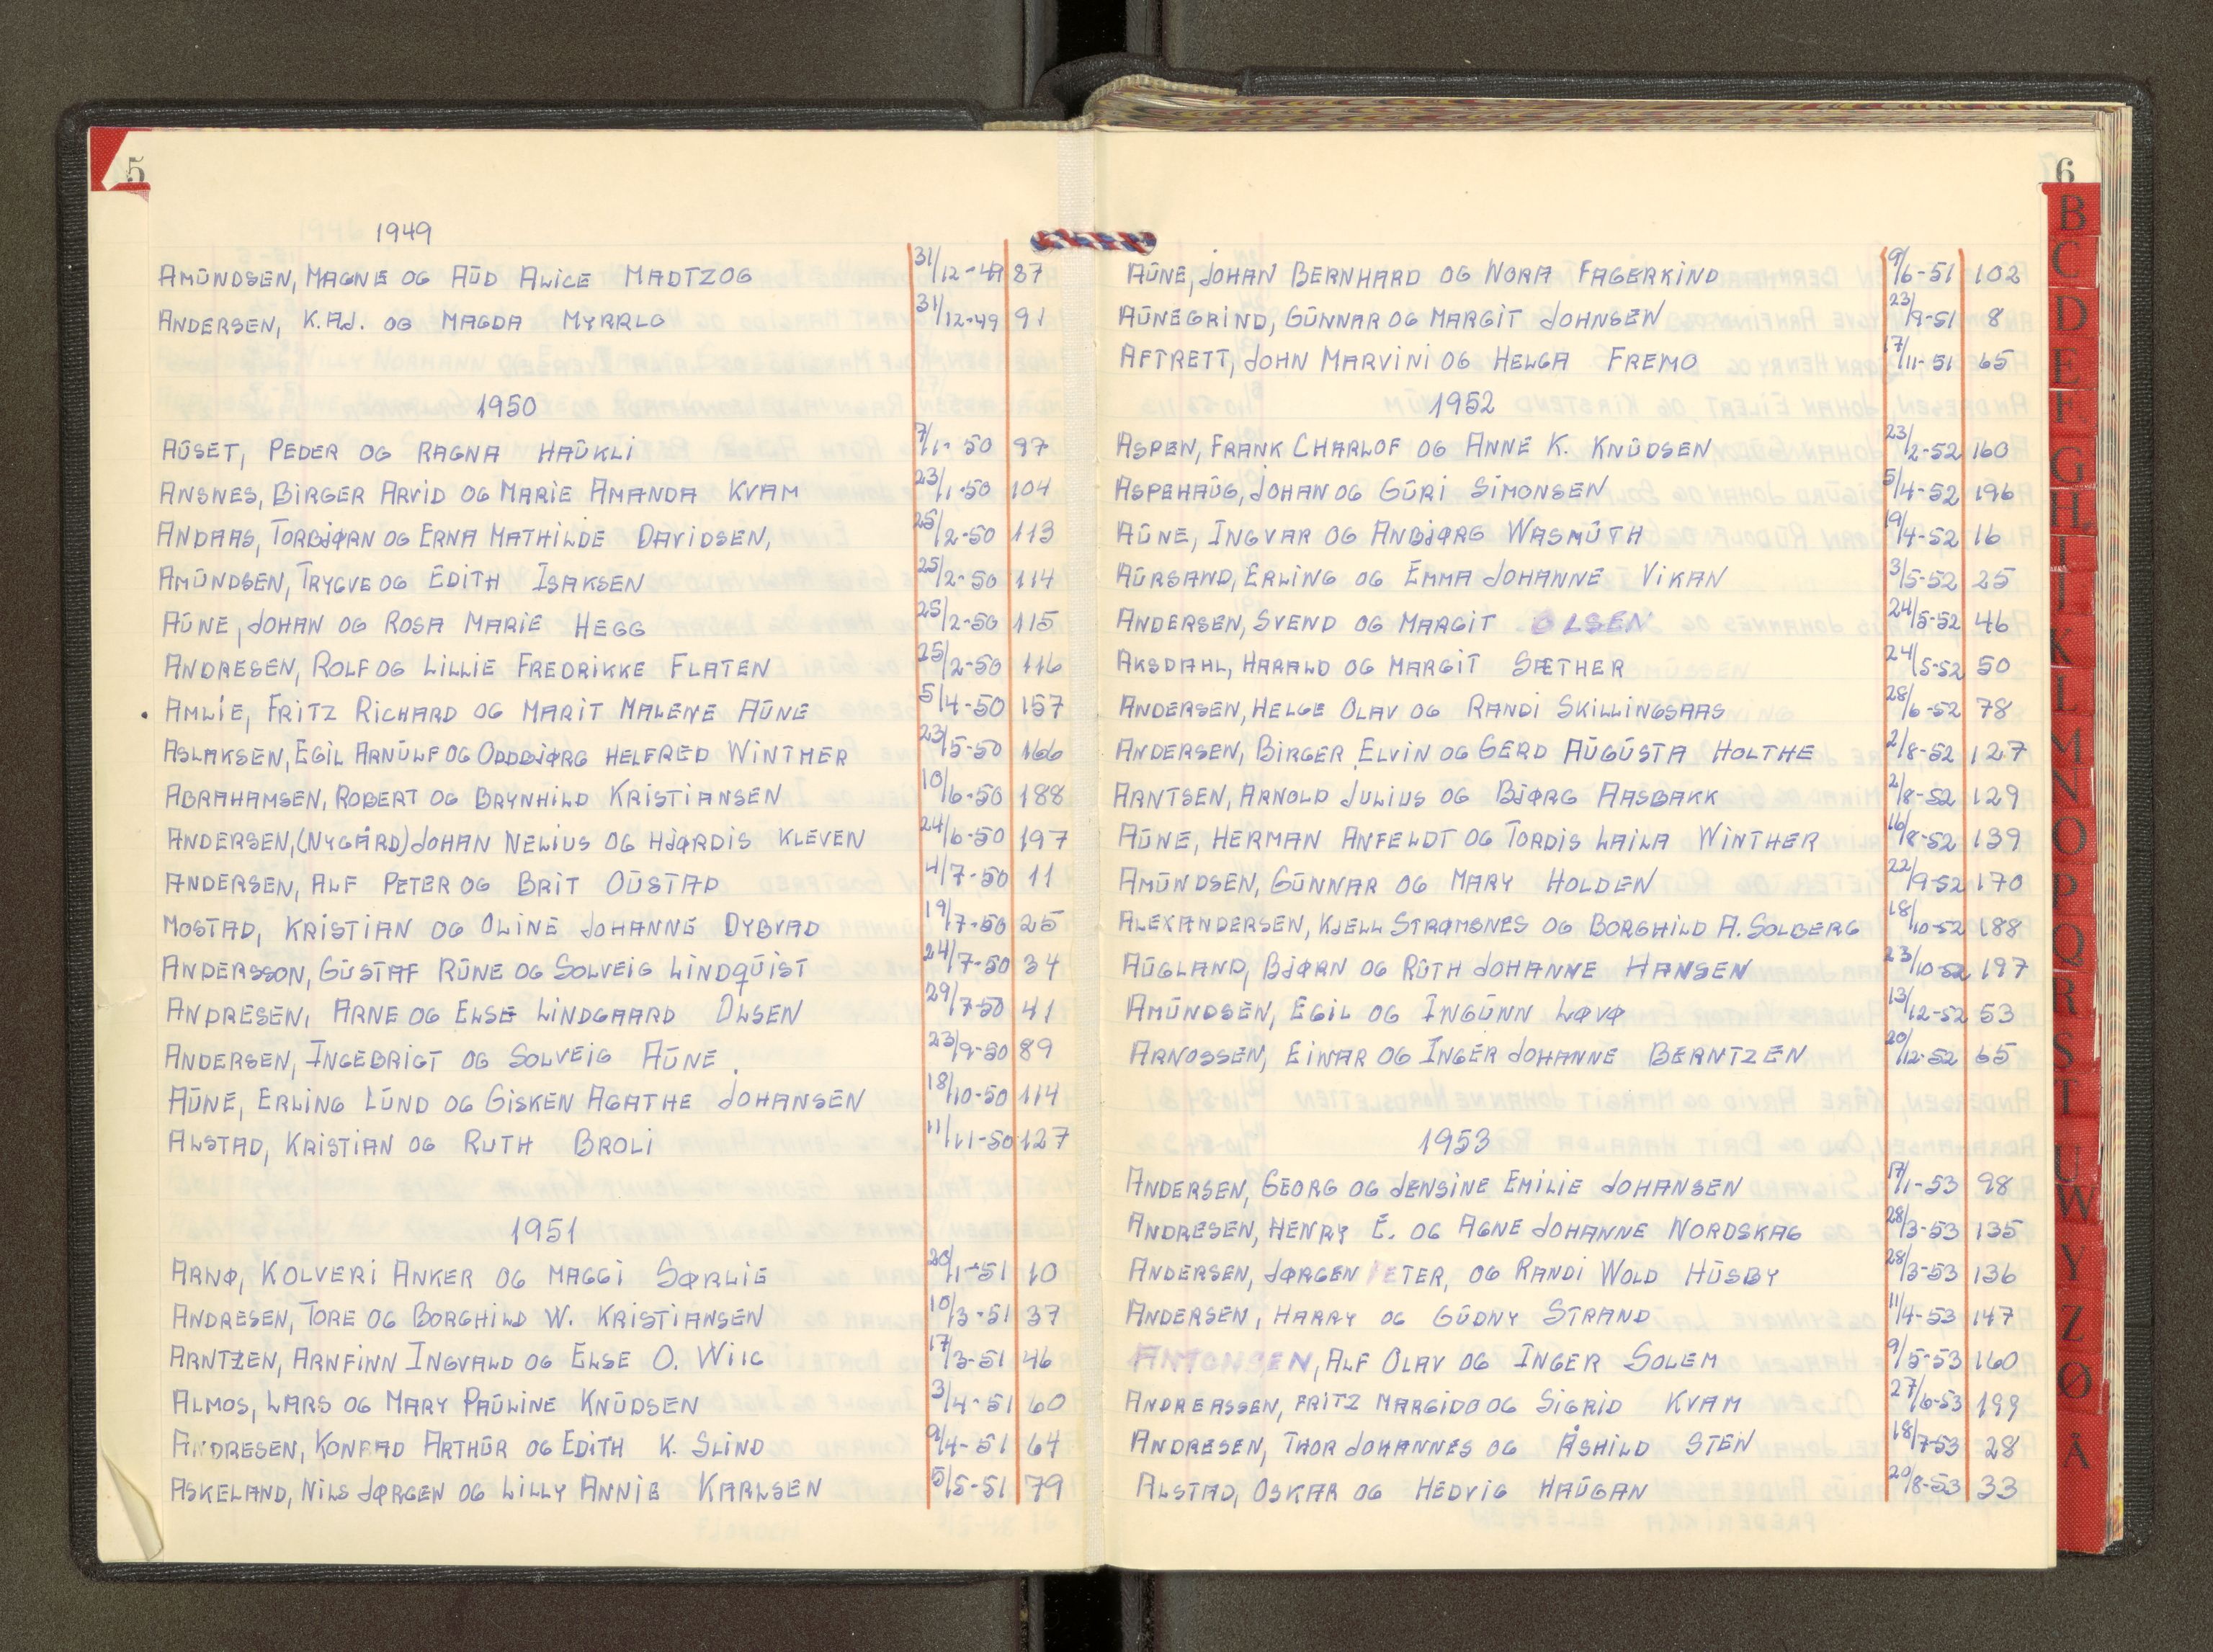 5
1949
AMŪNDSEN, MAGNE OG AŪD ALICE MADTZOG 31/12-49 87
ANDERSEN, K.AJ. OG MAGDA MYRRLG 31/12-49 91
1950
AŪSET, PEDER OG RAGNA HAŪKLI 7/1-50 97
ANSNES, BIRGER ARVID OG MARIE AMANDA KVAM 23/1-50 104
ANDAAS, TORBJØRN OG ERNA MATHILDE DAVIDSEN, 25/2-50 113
AMŪNDSEN, TRYGVE OG EDITH ISAKSEN 25/2-50 114
AŪNE, JOHAN OG ROSA MARIE HEGG 25/2-50 115
ANDRESEN, ROLF OG LILLIE FREDRIKKE FLATEN 25/2-50 116
AMLIE, FRITZ RICHARD OG MARIT MALENE AŪNE 5/4-50 157
ASLAKSEN, EGIL ARNŪLF OG ODDBJØRG HELFRED WINTHER 23/5-50 166
ABRAHAMSEN, ROBERT OG BRYNHILD KRISTIANSEN 10/6-50 188
ANDERSEN, (NYGÅRD) JOHAN NELIUS OG HJØRDIS KLEVEN 24/6-50 197
ANDERSEN, ALF PETER OG BRIT OŪSTAD 4/7-50 11
MOSTAD, KRISTIAN OG OLINE JOHANNE DYBVAD 19/7-50 25
ANDERSSON, GŪSTAF RŪNE OG SOLVEIG LINDQŪIST 24/7-50 34
ANDRESEN, ARNE OG ELSE LINDGAARD OLSEN 29/7-50 41
ANDERSEN, INGEBRIGT OG SOLVEIG AŪNE 23/9-50 89
AŪNE, ERLING LŪND OG GISKEN AGATHE JOHANSEN 18/10-50 114
ALSTAD, KRISTIAN OG RUTH BROLI 11/11-50 127
1951
ARNØ, KOLVERI ANKER OG MAGGI SØRLIE 20/1-51 10
ANDRESEN, TORE OG BORGHILD W. KRISTIANSEN 10/3-51 37
ARNTZEN, ARNFINN INGVALD OG ELSE O. WIIG 17/3-51 46
ALMOS, LARS OG MARY PAŪLINE KNŪDSEN 3/4-51 60
ANDRESEN, KONRAD ARTHŪR OG EDITH K. SLIND 9/4-51 64
ASKELAND, NILS JØRGEN OG LILLY ANNIE KARLSEN 5/5-51 79
6
AŪNE, JOHAN BERNHARD OG NORA FAGERKIND 9/6-51 102
AŪNEGRIND, GŪNNAR OG MARGIT JOHNSEN 23/9-51 8
AFTRETT, JOHN MARVINI OG HELGA FREMO 17/11-51 65
1952
ASPEN, FRANK CHARLOF OG ANNE K. KNŪDSEN 23/2-52 160
ASPEHAŪG, JOHAN OG GŪRI SIMONSEN 5/4-52 196
AŪNE, INGVAR OG ANBJØRG WASMŪTH 19/4-52 16
AŪRSAND, ERLING OG EMMA JOHANNE VIKAN 3/5-52 25
ANDERSEN, SVEND OG MARGIT OLSEN 24/5-52 46
AKSDAHL, HARALD OG MARGIT SÆTHER 24/5-52 50
ANDERSEN, HELGE OLAV OG RANDI SKILLINGSAAS 28/6-52 78
ANDERSEN, BIRGER ELVIN OG GERD AŪGŪSTA HOLTHE 2/8-52 127
ARNTSEN, ARNOLD JULIUS OG BJØRG AASBAKK 2/8-52 129
AŪNE, HERMAN ANFELDT OG TORDIS LAILA WINTHER 16/8-52 139
AMŪNDSEN, GŪNNAR OG MARY HOLDEN 22/9-52 170
ALEXANDERSEN, KJELL STRØMSNES OG BORGHILD A. SOLBERG 18/10-52 188
AŪGLAND, BJØRN OG RŪTH JOHANNE HANSEN 23/10-52 197
AMŪNDSEN, EGIL OG INGŪNN LØVØ 13/12-52 53
ARNOSSEN, EINAR OG INGER JOHANNE BERNTZEN 20/12-52 65
1953
ANDERSEN, GEORG OG JENSINE EMILIE JOHANSEN 17/1-53 98
ANDRESEN, HENRY E. OG AGNE JOHANNE NORDSKAG 28/3-53 135
ANDERSEN, JØRGEN PETER, OG RANDI WOLD HŪSBY 28/3-53 136
ANDERSEN, HARRY OG GŪDNY STRAND 11/4-53 147
ANTONSEN, ALF OLAV OG INGER SOLEM 9/5-53 160
ANDREASSEN, FRITZ MARGIDO OG SIGRID KVAM 27/6-53 199
ANDRESEN, THOR JOHANNES OG ÅSHILD STEN 18/7-53 28
ALSTAD, OSKAR OG HEDVIG HAŪGAN 20/8-53 33
B
C
D
E
F
G
H
I
J
K
L
M
N
O
P
Q
R
S
T
U
W
Y
Z
Ø
Å